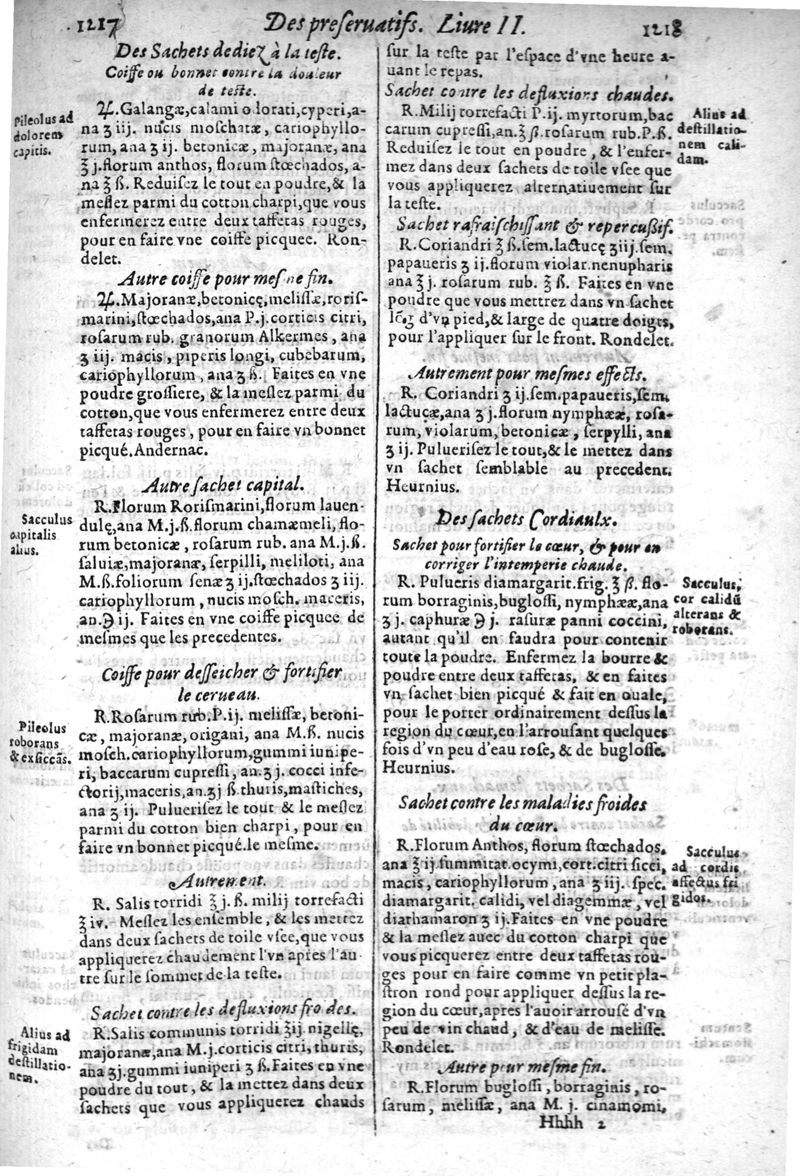 1217
Des preseruatifs. Liure II.
1218
Des Sachets dediez à la teste.
Coiffe ou bonnet contre la douleur
de teste.
Pileolus ad
dolorem
capitis.
♃.Galangæ,calami odorati,cyperi,a-
na ʒ iij. nucis moschatæ, cariophyllo-
rum, ana ʒ ij. betonicæ, majoranæ, ana
ʒ j.florum anthos, florum stœchados, a-
na ʒ ß. Reduisez le tout en poudre,& la
meslez parmi du cotton charpi,que vous
enfermerez entre deux taffetas rouges,
pour en faire vne coiffe picquee. Ron-
delet.
Autre coiffe pour mesme fin.
♃.Majoranæ,betonicę,melissæ,roris-
marini,stœchados,ana P.j.corticis citri,
rosarum rub. granorum Alkermes, ana
ʒ iij. macis, piperis longi, cubebarum,
cariophyllorum, ana ʒ ß. Faites en vne
poudre grossiere, & la meslez parmi du
cotton,que vous enfermerez entre deux
taffetas rouges, pour en faire vn bonnet
picqué.Andernac.
Autre sachet capital.
Sacculus
capitalis
alius.
R.Florum Rorismarini,florum lauen-
dulę,ana M.j.ß.florum chamæmeli, flo-
rum betonicæ, rosarum rub. ana M.j.ß.
saluiæ,majoranæ, serpilli, meliloti, ana
M.ß.foliorum senæ ʒ ij.stœchados ʒ iij.
cariophyllorum, nucis mosch. maceris,
an.℈ ij. Faites en vne coiffe picquee de
mesmes que les precedentes.
Coiffe pour desseicher & fortifier
le cerueau.
Pileolus
roborans
& exsiccãs.
R.Rosarum rub.P.ij. melissæ, betoni-
cæ, majoranæ, origani, ana M.ß. nucis
mosch.cariophyllorum,gummi iunipe-
ri, baccarum cupressi, an.ʒ j. cocci infe-
ctorij,maceris,an.ʒj ß thuris,mastiches,
ana ʒ ij. Puluerisez le tout & le meslez
parmi du cotton bien charpi, pour en
faire vn bonnet picqué.le mesme.
Autrement.
R. Salis torridi ℥ j. ß. milij torrefacti
℥ iv. Meslez les ensemble, & les mettez
dans deux sachets de toile vsee,que vous
appliquerez chaudement l'vn apres l'au-
tre sur le sommet de la teste.
Sachet contre les defluxions fro des.
Alius ad
frigidam
destillatio-
nem.
R.Salis communis torridi ℥ij. nigellę,
majoranæ,ana M.j.corticis citri, thuris,
ana ʒj.gummi iuniperi ʒ ß.Faites en vne
poudre du tout, & la mettez dans deux
sachets que vous appliquerez chauds
sur la teste par l'espace d'vne heure a-
uant le repas.
Sachet contre les defluxions chaudes.
Alius ad
destillatio-
nem cali-
dam.
R.Milij torrefacti P.ij. myrtorum,bac
carum cupressi,an.℥ ß.rosarum rub.P.ß.
Reduisez le tout en poudre, & l'enfer-
mez dans deux sachets de toile vsee que
vous appliquerez alternatiuement sur
la teste.
Sachet rafraischissant & repercußif.
R.Coriandri ℥ ß.sem.lactucę ʒiij.sem.
papaueris ʒ ij.florum violar.nenupharis
ana ʒ j. rosarum rub. ℥ ß. Faites en vne
poudre que vous mettrez dans vn sachet
lõg d'vn pied,& large de quatre doigts,
pour l'appliquer sur le front. Rondelet.
Autrement pour mesmes effects.
R. Coriandri ʒ ij.sem.papaueris,sem.
lactuçæ,ana ʒ j.florum nymphææ, rosa-
rum, violarum, betonicæ, serpylli, ana
ʒ ij. Puluerisez le tout,& le mettez dans
vn sachet semblable au precedent.
Heurnius.
Des sachets Cordiaulx.
Sachet pour fortifier le cœur, & pour en
corriger l'intemperie chaude.
Sacculus,
cor calidũ
alterans &
roborans.
R. Pulueris diamargarit.frig. ℥ ß. flo-
rum borraginis,buglossi, nymphææ,ana
ʒ j. caphuræ ℈ j. rasuræ panni coccini,
autant qu'il en faudra pour contenir
toute la poudre. Enfermez la bourre &
poudre entre deux taffetas, & en faites
vn sachet bien picqué & fait en ouale,
pour le porter ordinairement dessus la
region du cœur,en l'arrousant quelques
fois d'vn peu d'eau rose, & de buglosse.
Heurnius.
Sachet contre les maladies froides
du cœur.
Sacculus
ad cordis
affectus fri
gidos.
R.Florum Anthos, florum stœchados,
ana ℥ ij.summitat.ocymi,cort.citri sicci,
macis, cariophyllorum, ana ʒ iij. spec.
diamargarit. calidi, vel diagemmæ, vel
diarhamaron ʒ ij.Faites en vne poudre
& la meslez auec du cotton charpi que
vous picquerez entre deux taffetas rou-
ges pour en faire comme vn petit pla-
stron rond pour appliquer dessus la re-
gion du cœur,apres l'auoir arrousé d'vn
peu de vin chaud, & d'eau de melisse.
Rondelet.
Autre pour mesme fin.
R.Florum buglossi, borraginis, ro-
sarum, melissæ, ana M. j. cinamomi,
Hhhh 2